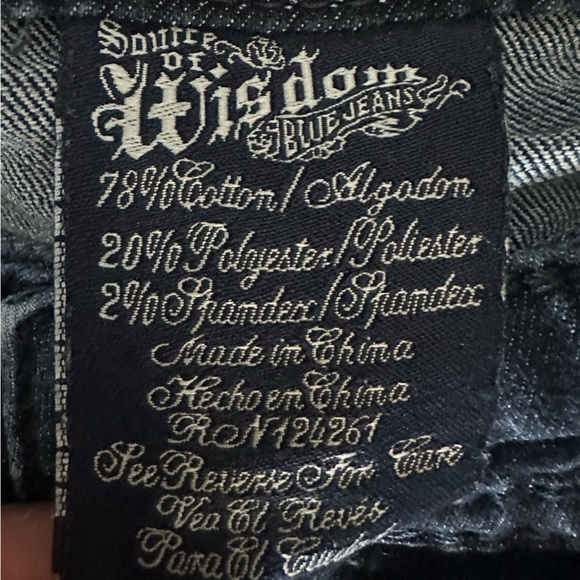 Source
of
Wisdom
BLUE JEANS
78% Cotton / Algodon
20% Polyester / Poliester
2% Spandex / Spandex
Made in China
Hecho en China
RN 124261
See Reverse For Care
Vea El Revés
Para El